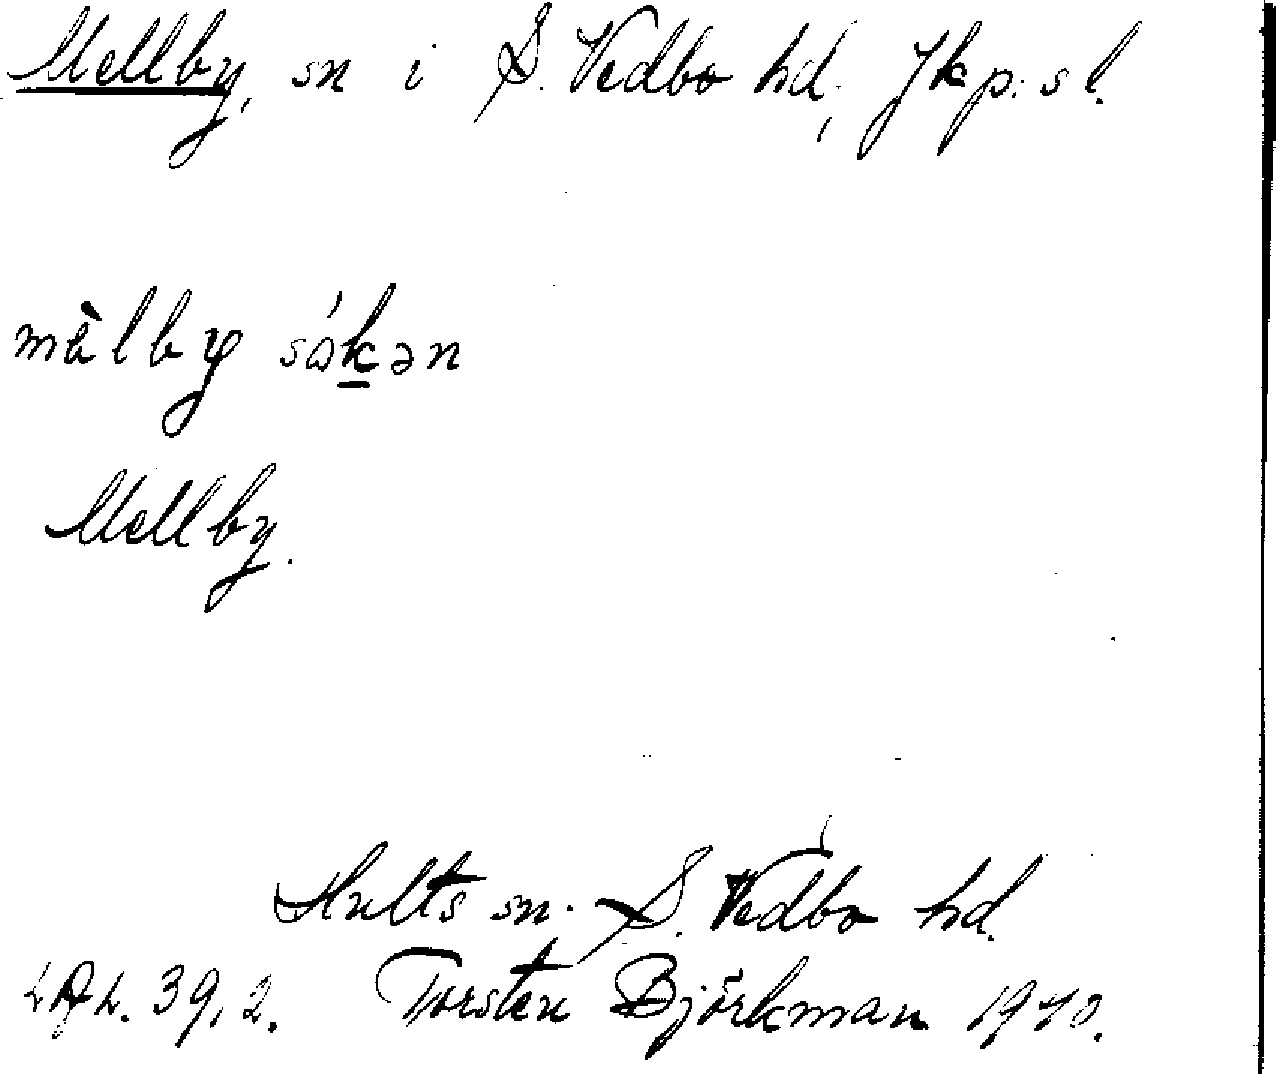 Mellby, sn i S. Vedbo hd, Jkp:s l.
mɛ̀lby sókən
Mellby.
Hults sn. S. Vedbo hd.
39,2. Torsten Björkman 1940.